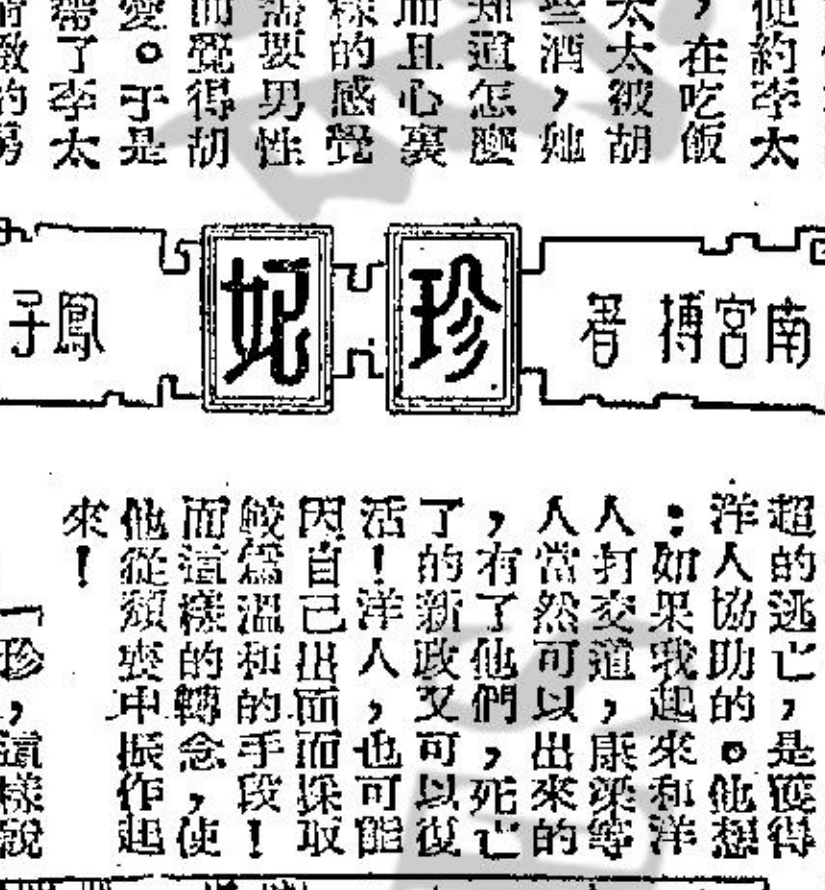 便約李太
，在吃飯
太太被胡
些酒，她
知道怎麼
而且心裏
樣的感覺
需要男性
而覺得胡
愛。于是
帶了李太
南宮搏著
珍妃
鳳子
超的逃亡，是獲得
洋人協助的。他想
：如果我起來和洋
人打交道，康梁等
人當然可以出來的
，有了他們，死亡
了的新政又可以復
活！洋人，也可能
因自己出面而採取
較為溫和的手段！
而這樣的轉念，使
他從頹喪中振作起
來！
珍，這樣說